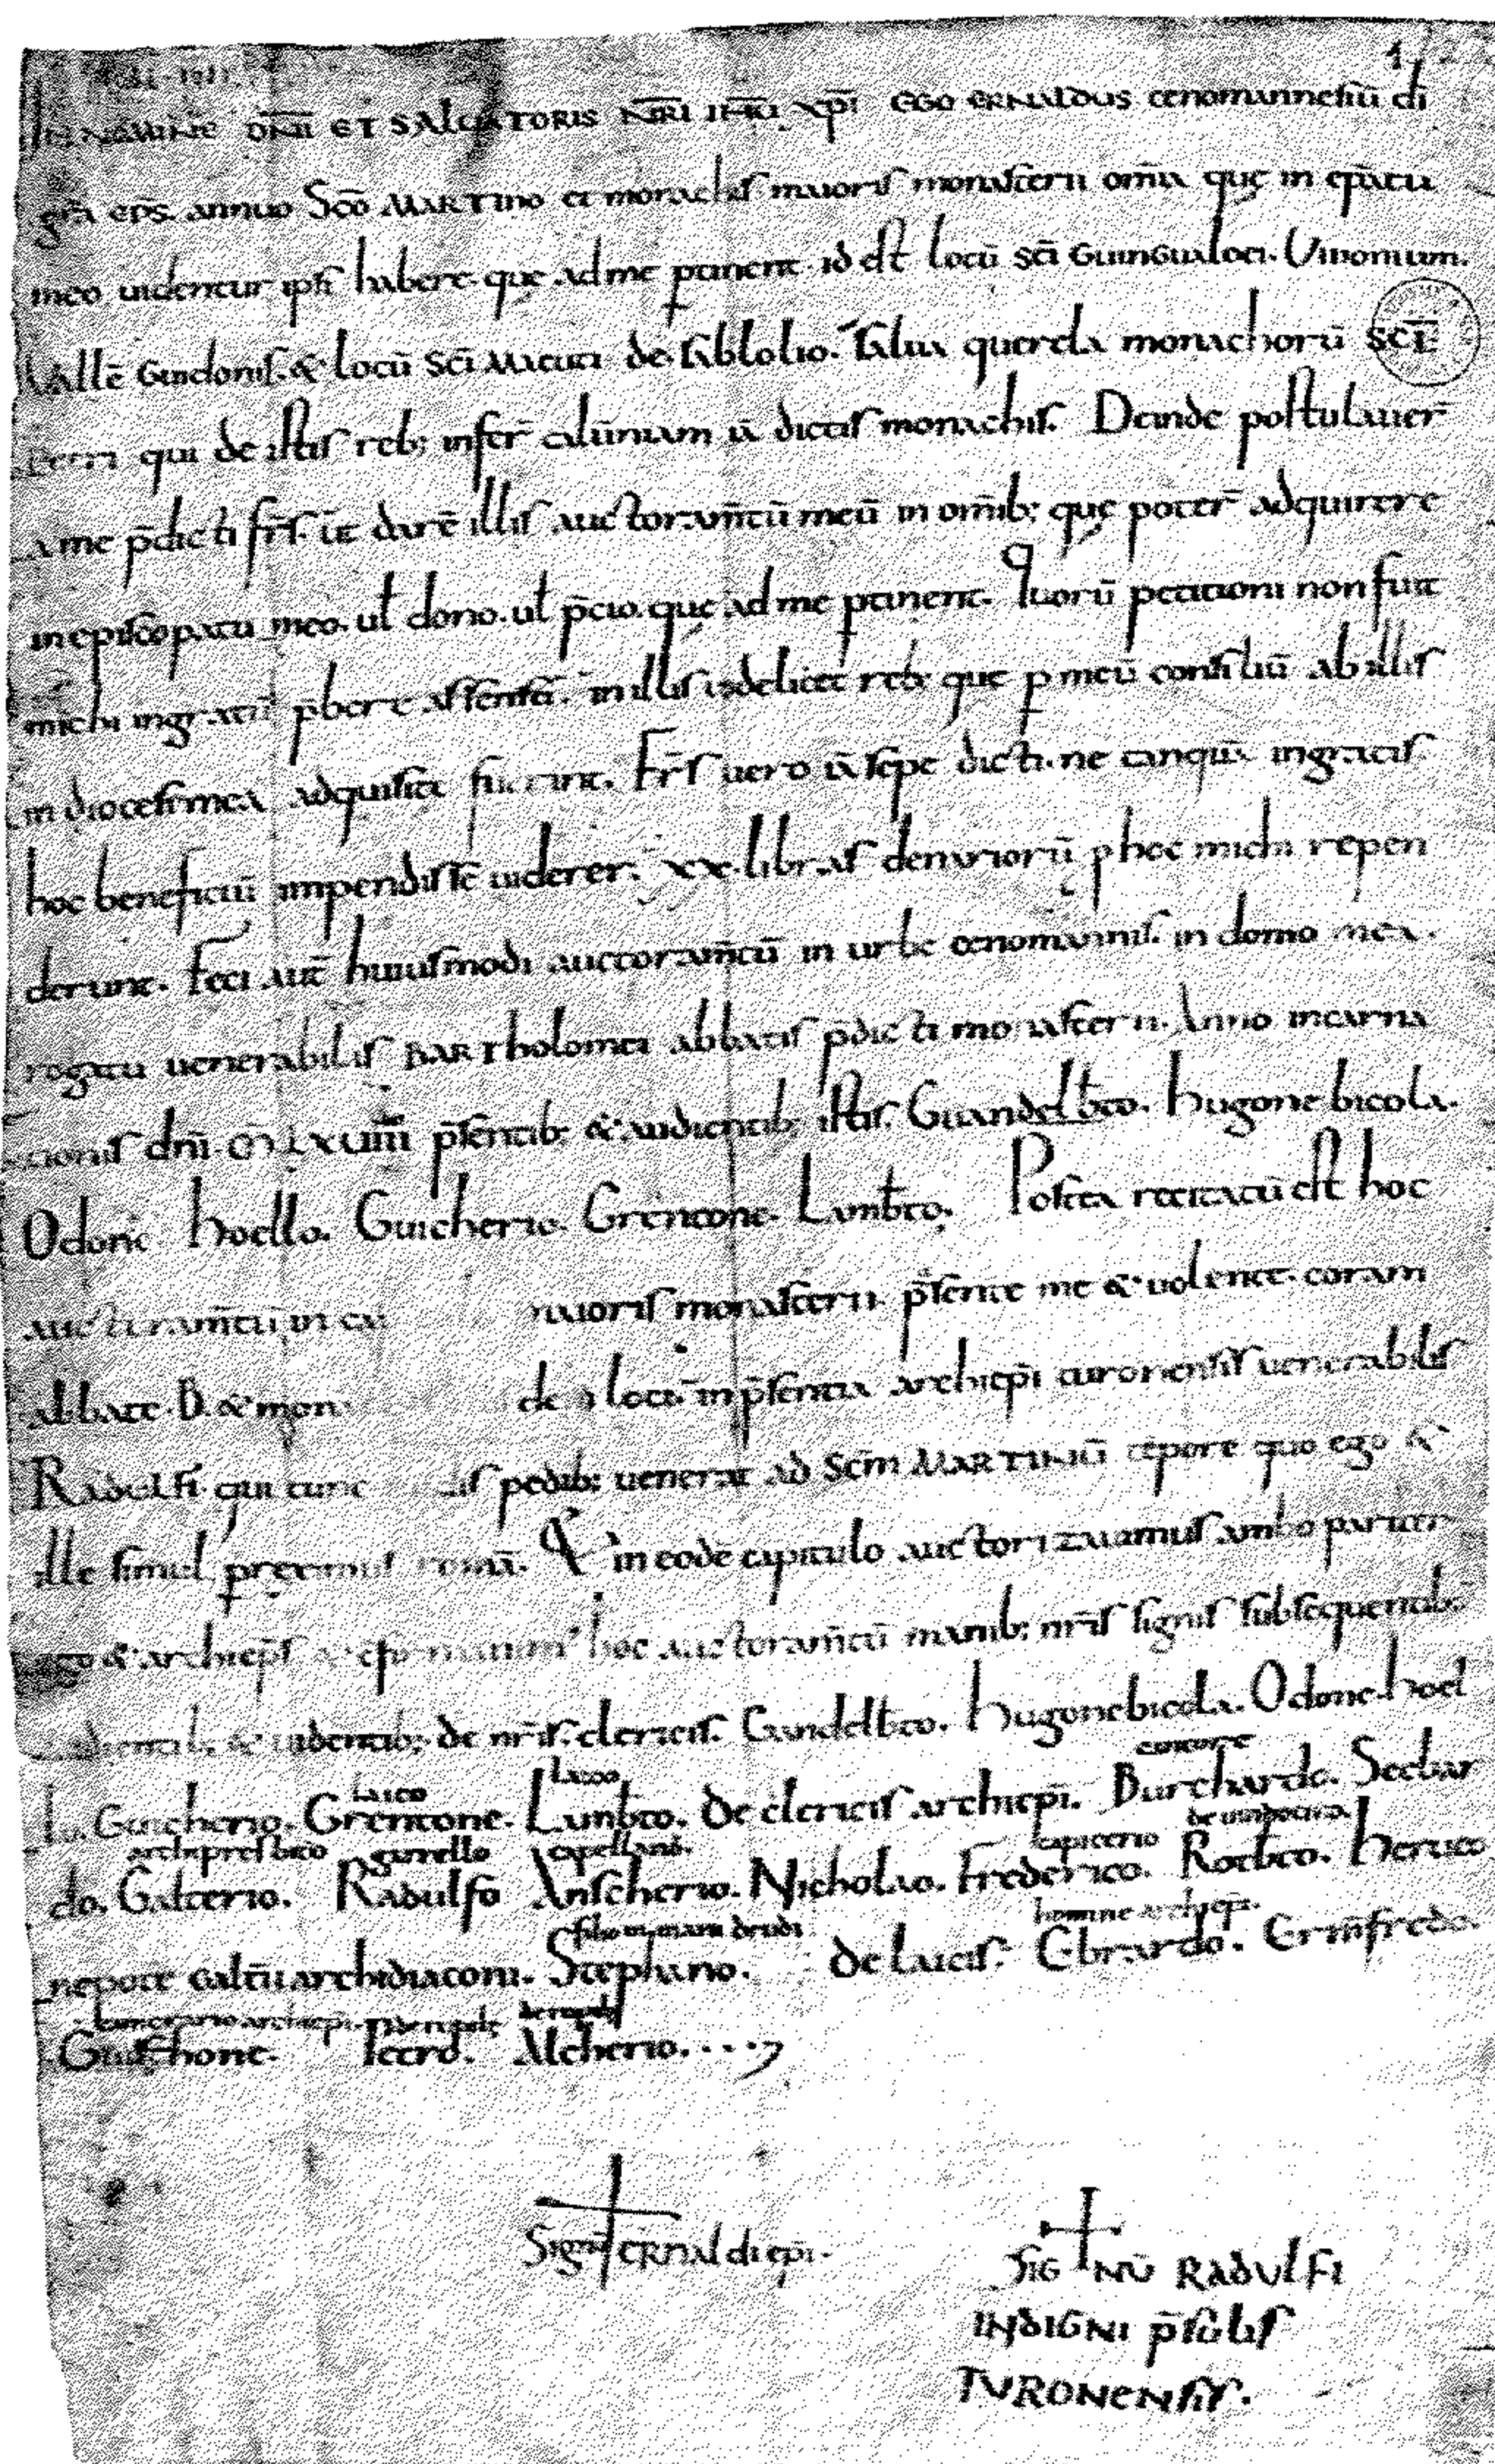 1
IN NOMINE DNI ET SALVATORIS NRI IHU XPI EGO ERNALDUS cenomannensiū di
gra eps. annuo Sco MARTINO et monachis maioris monasterii omia quę in epatu
meo uidentur ipsi habere. que ad me ptinent. id est locū sci Guingualoei. Uiuonium.
Uallē Guidonis. & locū sci Macuti de sablolio. salua querela monachorū sci
Petri qui de istis reb; infer̄ calūniam ia dictis monachis. Deinde postulauer̄
a me p̄dicti frs̄. ut darē illis auctoram̄tū meū in omib; quę poter̄ adquirere
in episcopatu meo. ul dono. ul p̄cio. quę ad me ptinent. Quorū petitioni non fuit
michi ingratū p̄bere assensū. in illis uidelicet reb; que p meū consiliū ab illis
in diocesi mea adquisitę fuerint. Frs̄ uero ia sepe dicti. ne tanquā ingratis
hoc beneficiū impendisse uiderer. xx. libras denariorū p hoc michi repen
derunt. Feci aut huiusmodi auctoram̄tū in urbe cenomannis. in domo mea.
rogatu uenerabilis BARtholomei abbatis p̄dicti monasterii. Anno incarna
tionis dni. M LXVIIII p̄sentib; & audientib; istis. Guandelb̄to. hugone bicola.
Odone hoello. Guicherio. Grentone. Lanb̄to. Postea recitatū est hoc
auctoram̄tū in ca maioris monasterii. p̄sente me & uolente. coram
abbate .B. & mon de loci. in p̄sentia archiepi turonensis uenerabilis
Radulfi. qui tunc is pedib; uenerat ad Scm MARTINŪ tēpore quo ego &
ille simul preximus romā. & in eodē capitulo auctorizauimus ambo pariter
ego & archieps̄ & hoc auctoram̄tū manib; nris signis subsequentib;
audientib; & uidentib; de nris clericis. Gundelb̄to. hugone bicola. Odone. hoel
lo. Guicherio. Grentone. laico Lanb̄to. laico De clericis archiepi. Burchardo. cantore Seebar
do. Galterio. archipresb̄ito Radulfo garrello Anscherio. capellano. Nicholao. Frederico. capicerio Rotb̄to. de uindocino. heruco
nepote galt̄ii archidiaconi. Stephano. filio mainardi De laicis. Ebrardo. homine archiepi. Ermfredo.
Guischone. camerario archiepi. Alcherio.
Signū ernaldi epi.
SIGNŪ RADULFI
INDIGNI p̄sulis
TURONENSIS.